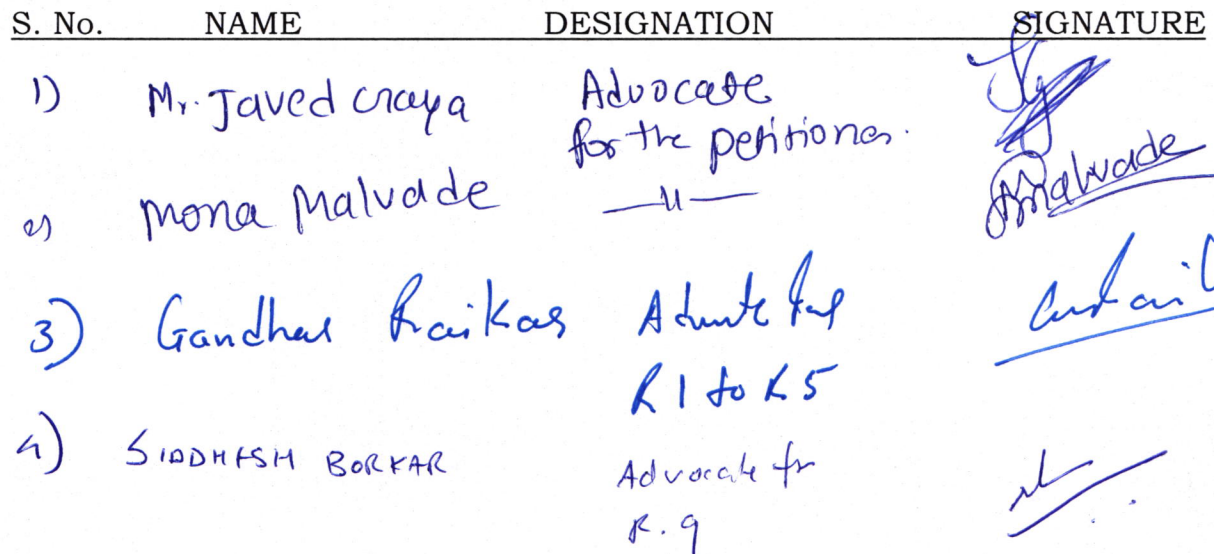 S. No. NAME DESIGNATION SIGNATURE
1) Mr. Javed Advocate
for the petitioner.
2) Mona Malvade —11— Malvade
3) Gandhar Raikar Advocate for
R 1 to R 5
4) SIDDHESH BORKAR Advocate for
R. 9